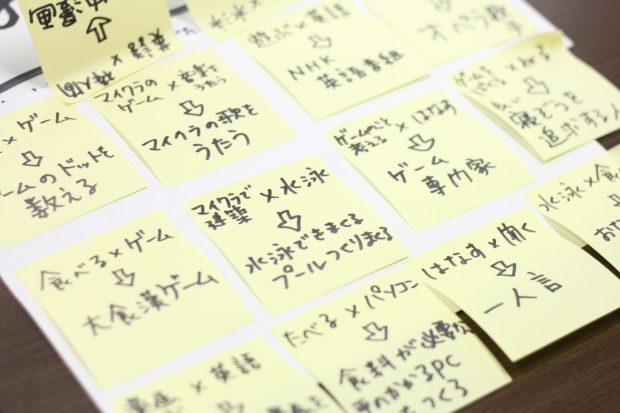 遊ぶ×英語
NHK
英語番組
オペラ歌手
マイクラの
ゲーム×音楽
うたう
マイクラの歌を
うたう
×ゲーム
ゲームのドットを
数える
ゲームのことを
考える×はなす
ゲーム
専門家
ゲーム
×ねる
寝どこを
追求する人
マイクラで
建築×水泳
水泳できまくる
プールつくりまくる
水泳×食
食べる×ゲーム
大食漢ゲーム
はなす×聞く
一人言
たべる×パソコン
食料が必要な
PC
つくる
×英語